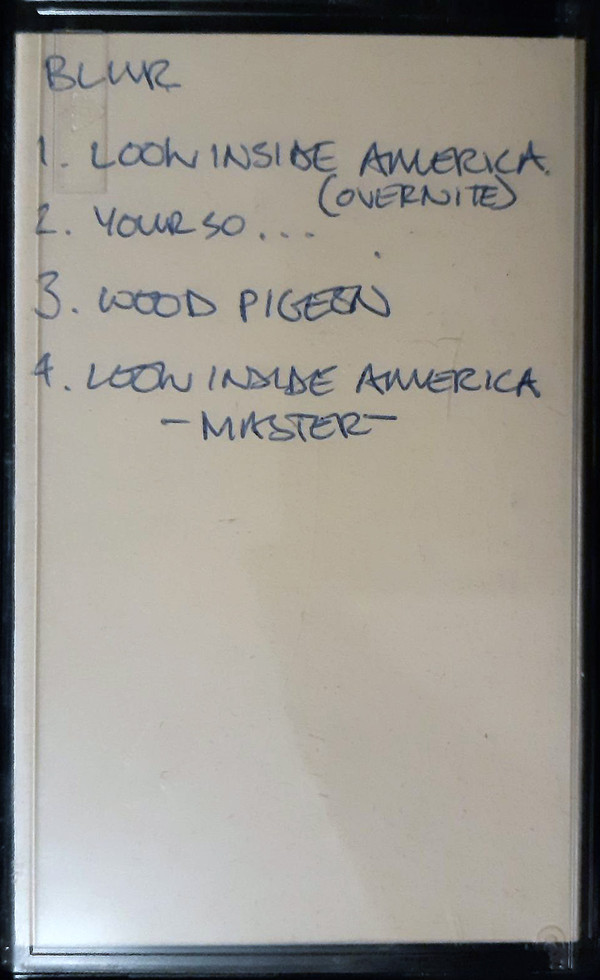 BLUR
1. LOOK INSIDE AMERICA.
(OVERNITE)
2. YOUR SO...
3. WOOD PIGEON
4. LOOK INSIDE AMERICA
-MASTER-